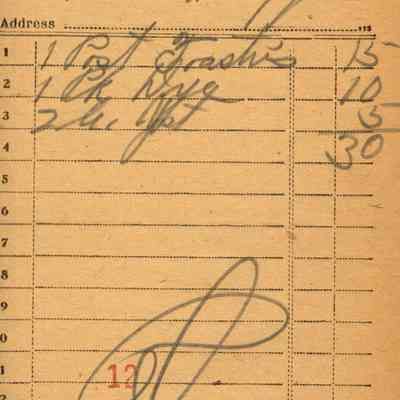 Address
1 1 Post Toasties 15
2 1 Pk Dye 10
3 5
4 30
5
6
7
8
9
0
1 12
2